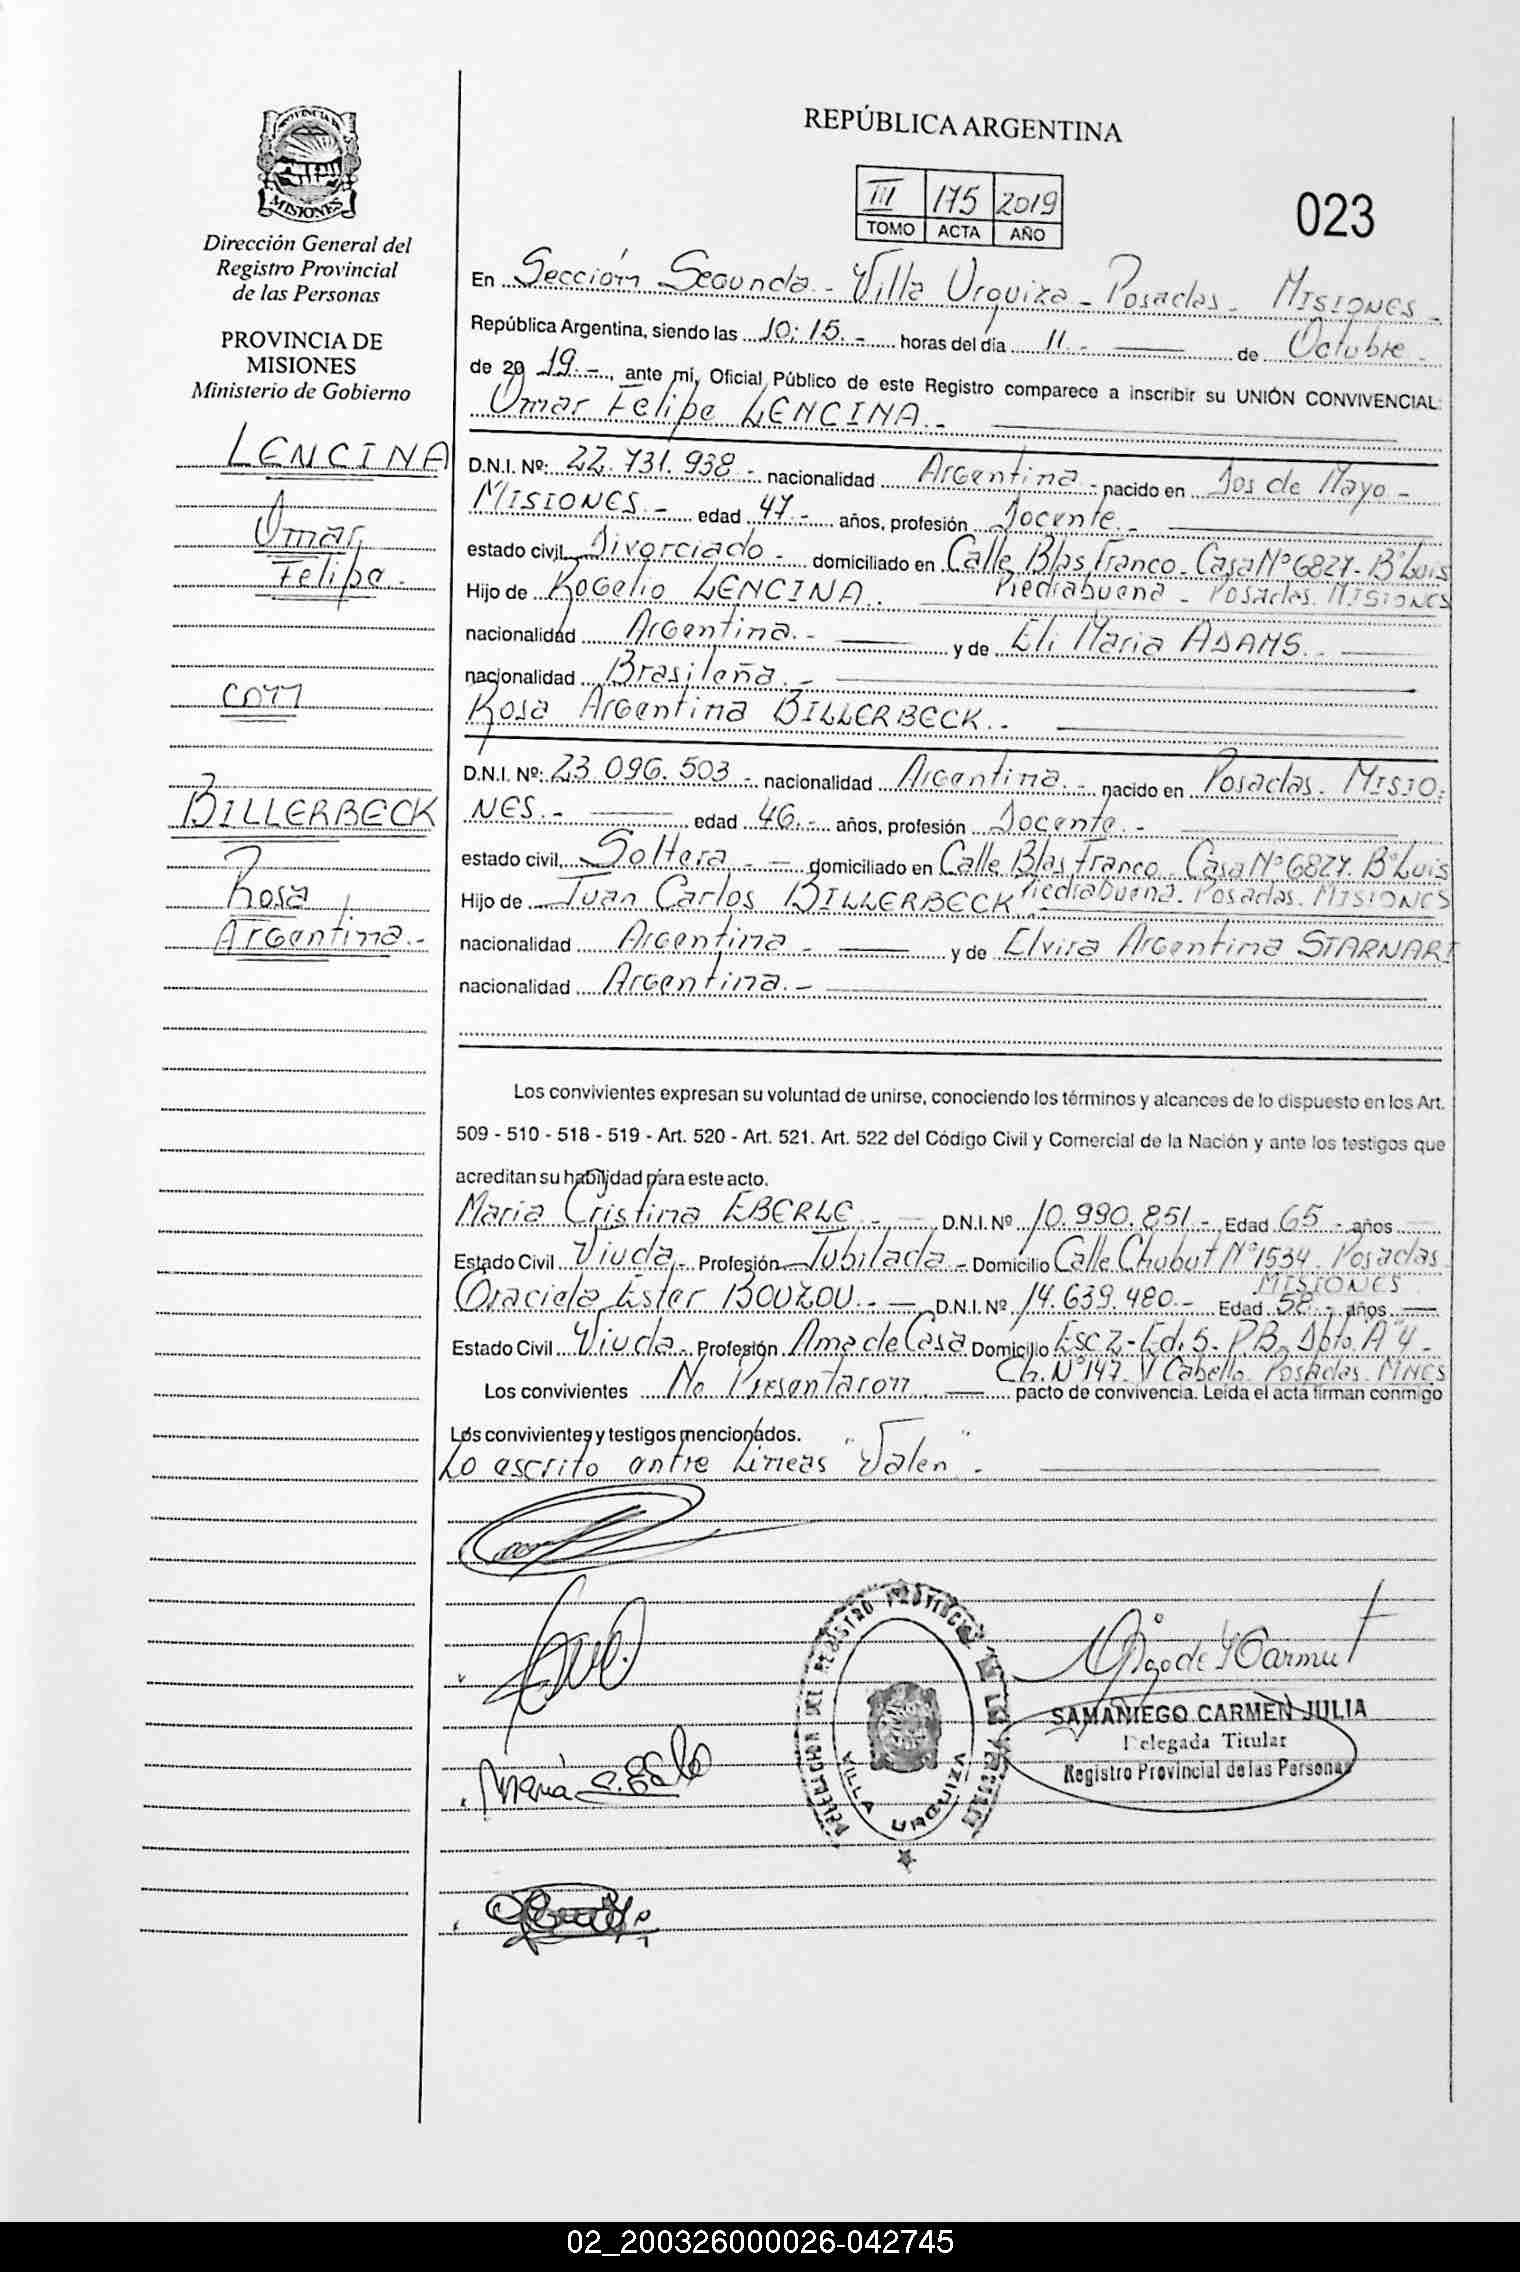 PROVINCIA DE
MISIONES
Dirección General del
Registro Provincial
de las Personas
PROVINCIA DE
MISIONES
Ministerio de Gobierno
LENCINA
Omar
Felipe.
con
BILLERBECK
Rosa
Argentina.-
REPÚBLICA ARGENTINA
III 175 2019
TOMO ACTA AÑO
023
En Sección Segunda - Villa Urquiza - Posadas - MISIONES -
República Argentina, siendo las 10:15.- horas del día 11.- de Octubre -
de 2019.-, ante mí, Oficial Público de este Registro comparece a inscribir su UNIÓN CONVIVENCIAL:
Omar Felipe LENCINA.-
D.N.I. Nº: 22.731.938 - nacionalidad Argentina - nacido en Dos de Mayo -
MISIONES.- edad 47 - años, profesión Docente.-
estado civil Divorciado - domiciliado en Calle Blas Franco - Casa Nº 6827 - Bº Luis
Piedrabuena - Posadas. MISIONES
Hijo de Rogelio LENCINA.
nacionalidad Argentina.- y de Eli Maria ADAMS.
nacionalidad Brasileña.-
Rosa Argentina BILLERBECK.-
D.N.I. Nº: 23.096.503 - nacionalidad Argentina.- nacido en Posadas. MISIO-
NES.- edad 46.- años, profesión Docente.-
estado civil Soltera - domiciliado en Calle Blas Franco - Casa Nº 6827. Bº Luis
Piedrabuena. Posadas. MISIONES
Hijo de Juan Carlos BILLERBECK
nacionalidad Argentina - y de Elvira Argentina STARNARI
nacionalidad Argentina.-
Los convivientes expresan su voluntad de unirse, conociendo los términos y alcances de lo dispuesto en los Art.
509 - 510 - 518 - 519 - Art. 520 - Art. 521. Art. 522 del Código Civil y Comercial de la Nación y ante los testigos que
acreditan su habilidad para este acto.
Maria Cristina EBERLE - D.N.I. Nº 10.990.851 - Edad 65 - años
Estado Civil Viuda - Profesión Jubilada - Domicilio Calle Chubut Nº 1534 - Posadas
MISIONES
Graciela Ester BOUZOU.- D.N.I. Nº 14.639.480.- Edad 58 - años
Estado Civil Viuda - Profesión Ama de Casa Domicilio Esc 2 - Ed. 5 - PB. Dpto. A 4 -
Ch. Nº 147. V Cabello. Posadas. MNES
Los convivientes No Presentaron pacto de convivencia. Leída el acta firman conmigo
Los convivientes y testigos mencionados.
Lo escrito entre Lineas "Valen".-
DELEGACION DEL REGISTRO PROVINCIAL DE LAS PERSONAS
VILLA URQUIZA
SAMANIEGO CARMEN JULIA
Delegada Titular
Registro Provincial de las Personas
02_200326000026-042745